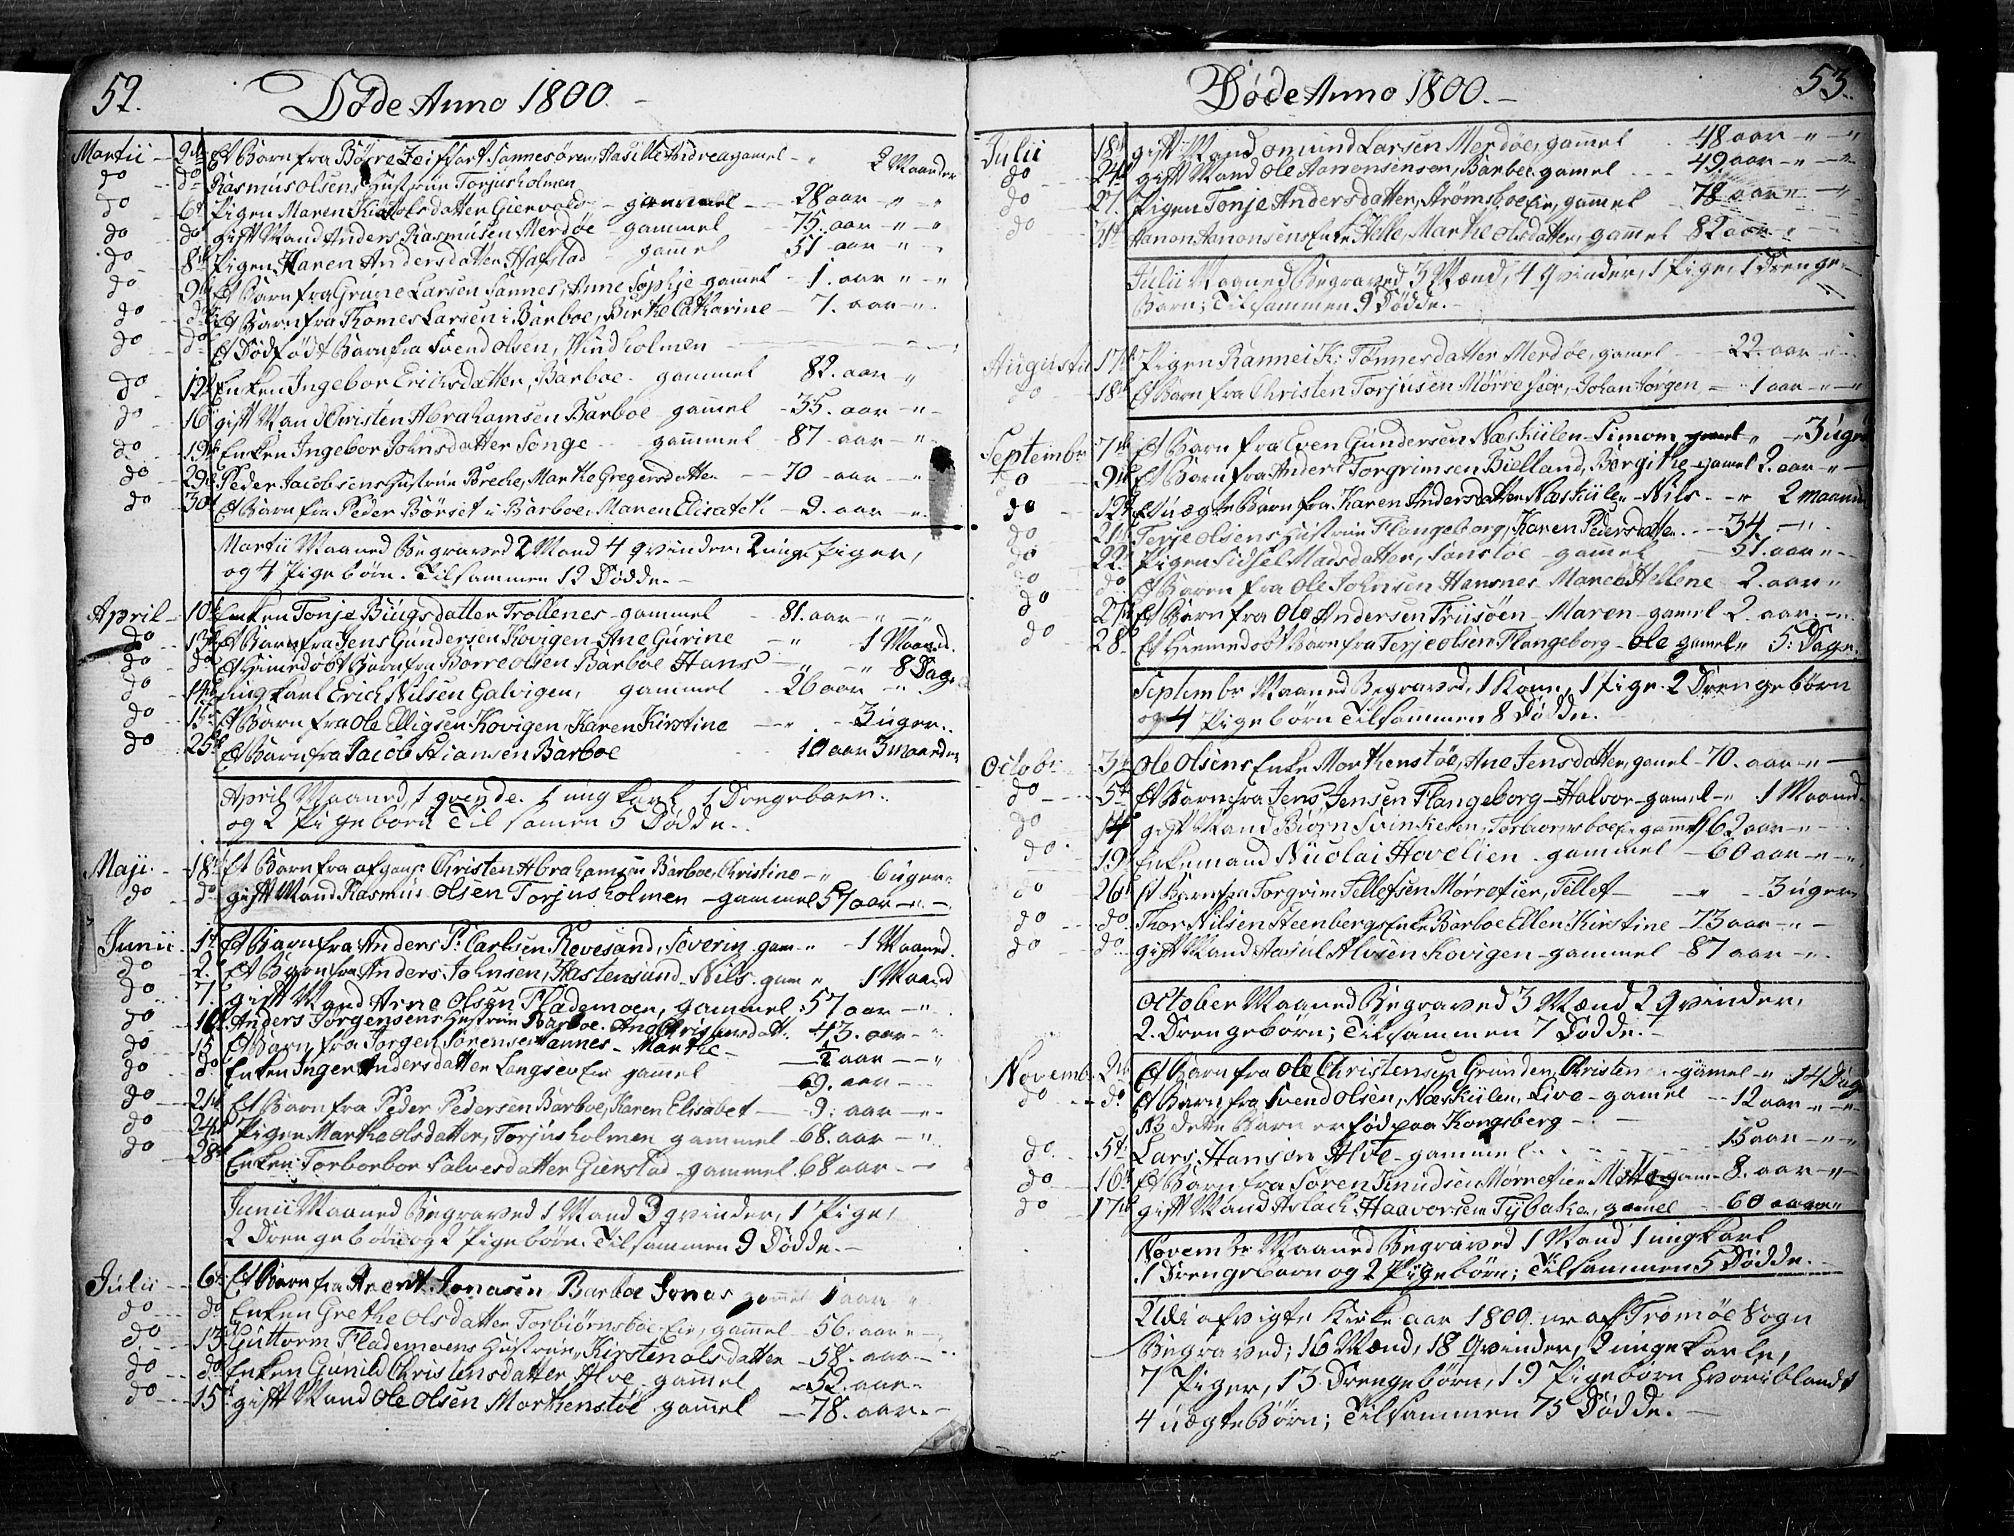 52.
Døde Anno 1800.
Martii 2de Et Barn fra Børre Zeiffart Sannesøren, Aasille Andrea gamel 2 Maaneder
do do Rasmus Olsens Hustrue Torjusholmen
do 6t Pigen Maren Olsdatter Giervold gammel 28 aar
do do gift Mand Anders Rasmusen Merdøe gammel 75. aar
do 8t Pigen Karen Andersdatter Hafstad gamel 51 aar
do 9t Et Barn fra Grune Larsen Sannes, Anne Sophie gamel 1. aar
do do Et Barn fra Thomes Larsen i Barboe, Birthe Catharine 7. aar
do do Et Dødfødt Barn fra Svend Olsen, Vindholmen
do 12t Enken Ingebor Erichsdatter, Barboe. gammel 82. aar
do 16 gift Man Christen Abrahamsen Barboe gamel 35. aar
do 19t Enken Ingebor Johnsdatter Songe gammel 87 aar
do 29t Peder Jacobsens Hustrue Breche, Marthe Gregersdatter 70 aar
do 30t Et Barn fra Peder Børset i Barboe, Maren Elisabeth 9. aar
Martii Maaned Begraved 2 Mand 4 qvinder, 2 unge Piger,
og 4 Pigebørn. Tilsammen 12 Dødde.
April 10t Enken Tonje Bûgsdatter Trollenes gammel 81. aar
do 13t Et Barn fra Jens Gundersen Kovigen Ane Gurine 1 Maaned.
do do Et Hiemedøbt Barn fra Børre Olsen Barboe Hans 8 Dag.
do 14t ungkarl Erich Nilsen Galvigen, gammel 26 aar
do 15t Et Barn fra Ole Elligsen Kovigen, Karen Kirstine 3 uger.
do 25t Et Barn fra Jacob Stiansen Barboe 10 aar 3 maaneder
April Maaned, 1 qvende. 1 ungkarl, 1 Drengebarn.
og 2 Pigebørn Til samen 5 Dødde.
Maji 18t Et Barn fra afgang: Christen Abrahamsen Barboe, Christine 6 uger
do do gift Mand Rasmus Olsen Torjusholmen gammel 57 aar
Junii 1t Et Barn fra Anders P: Carlsen Revesand, Severin gam 1 Maaned.
do 2. Et Barn fra Anders Johnsen, Hastensund Nils gam 1 Maaned
do 7. gift Mand Arne Olsen Flademoen, gammel 57 aar
do 10t Anders Jørgensens Hustrue Barboe. Ane Christensdatt. 43. aar
do 15 Et Barn fra Jørgen Sørensen Sannes Marthe 1/2 aar
do do Enken Inger Andersdatter Langsev Eie gamel 69. aar
do 21t Et Barn fra Peder Pedersen Barboe, Karen Elisabet 9. aar
do 24t Pigen Marthe Olsdatter, Torjusholmen gammel 68. aar
do 28t Enken Torborbor Salvesdatter Gierstad gammel 68 aar
Junii Maaned Begraved 1 Mand 3 qvinder, 1 Pige,
2 Drengebørn og 2 Pigebørn. Tilsammen 9 Dødde.
Julii 6t Et Barn fra Arent Jonasen Barboe Jonas gamel 1 aar
do do Enken Grethe Olsdatter Torbiørnsboe Eie, gammel 56. aar
do 13. Guttorm Flademoens Hustrue, Kirsten Olsdatter 58. aar
do do Enken Gunild Christensdatter Alve gammel 52. aar
do 15t gift Mand Ole Olsen Morthenstøl gammel 78. aar
53.
Døde Anno 1800.
Julii 18t gift Mand Omund Larsen Merdøe, gammel 48 aar
do 24t gift Mand Ole Aanonsensen, Barboe gamel 49 aar
do 27. Pigen Tonje Andersdatter, Strømsboe Eie, gamel 78 aar
do 31t Aanon Aanonsens Enke Helle, Marthe Olsdatter, gamel 82 aar
Julii Maaned Begraved 3 Mænd, 4 qvinder, 1 Pige, 1 Drenge-
Barn; Tilsammen 9 Dødde.
Augusti 17t Pigen Rannei K: Tønnesdatter Merdøe, gamel 22. aar
do 18t Et Barn fra Christen Torjusen Mørrefior, Johan Jørgen 1 aar
Septembr 7t Et Barn fra Even Gundersen Næskiilen Simon gamel 3 uger
do 9t Et Barn fra Anders Torgrimsen Bielland, Børgithe gamel 2. aar
do 12t Et uægte Barn fra Karen Andersdatter Næskiilen Nils 2 maaneder
do 21t Terje Olsens Hustrue Flangeborg, Karen Pedersdatter 34.
do 22. Pigen Sidsel Madsdatter, Sandstøe gamel 51. aar
do do Et Barn fra Ole Johnsen Hansnes Maren Hellene 2. aar
do 27t Et Barn fra Ole Andersen Friisøen Maren gamel 2. aar
do 28. Et Hiemedøbt Barn fra Terje Olsen Flangeborg Ole gamel 5: Dage.
Septembr Maaned Begraved, 1 Kone, 1 Pige 2 Drengebørn
og 4 Pigebørn Tilsammen 8 Dødde.
Octobr 3t Ole Olsens Enke Morthenstøe, Ane Jensdatter, gamel 70. aar
do 5t Et Barn fra Jens Jensen Flangeborg Halvor gamel 1 Maaned
do 14 gift Mand Biørn Svinkesen, Torbiørnsboe gamel 62 aar
do 19. Enkemand Nicolai Hovelien gammel 60 aar
do 26t Et Barn fra Torgrim Tellefsen Mørrefier, Tellef 3 uger
do do Thor Nilsen Steenbergs Enke Barboe Ellen Kirstine 73 aar
do do gift Mand Aasul Alvsen Kovigen gammel 87 aar
October Maaned Begraved 3 Mænd 2 qvinder,
2 Drengebørn; Tilsammen 7 Dødde.
Novemb. 2t Et Barn fra Ole Christensen Grunden, Christen gamel 14 Dage
do do Et Barn fra Svend Olsen, Næskiilen, Live gamel 12 aar
NB dette Barn er fød paa Kongsberg
do 5t Lars Hansøn Alve gammel 15 aar
do 16t Et Barn fra Søren Knudsen Mørrefier Mette gam. 8. aar
do 17t gift Mand Aslach Haavorsen Tybaken, gamel 60 aar
Novembr Maaned Begraved 1 Mand 1 ungkarl
1 Drengebarn og 2 Pigebørn; Tilsammen 5 Dødde.
Udi afvigte Kirke aar 1800 er af Tromøe Sogn
Begraved; 16 Mænd, 18 qvinder, 2 unge karle,
7 Piger, 13 Drengebørn, 19 Pigebørn hvoriblandt
4 uægte Børn; Tilsammen 75 Dødde.